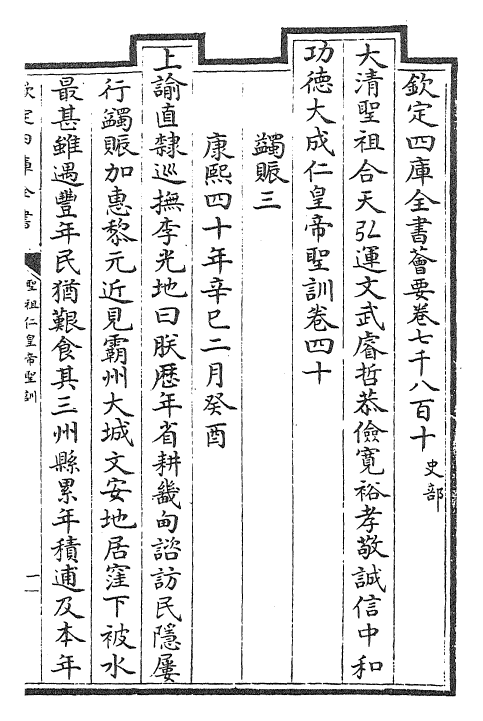 欽定四庫全書薈要卷七千八百十 史部
大清聖祖合天弘運文武睿哲恭儉寬裕孝敬誠信中和
功德大成仁皇帝聖訓卷四十
蠲賑三
康熙四十年辛巳二月癸酉
上諭直隸巡撫李光地曰朕歷年省耕畿甸諮訪民隱屢
行蠲賑加惠黎元近見霸州大城文安地居窪下被水
最甚雖遇豐年民猶艱食其三州縣累年積逋及本年
欽定四庫全書
聖祖仁皇帝聖訓
一